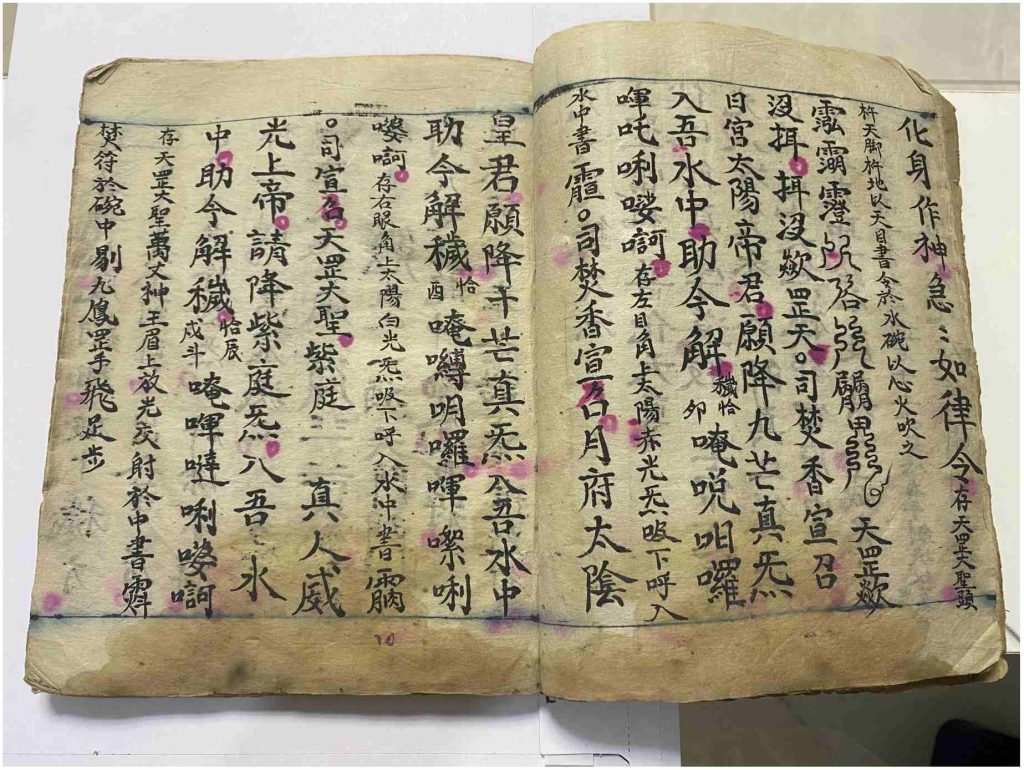 化身作神急〻如律令存天罡大聖頭
杵天脚杵地以天目書令於水碗以心火吹之
天罡欻
沒挕挕沒欻罡天司焚香宣召
日宮太陽帝君願降九芒真炁
入吾水中助令解穢恰卯唵哾呬囉
㖷吒唎娑訶存左目角上太陽赤光炁吸下呼入
水中書司焚香宣召月府太陰
皇君願降十芒真炁入吾水中
助令解穢恰酉唵嚩明囉㖷縩唎
娑訶存右眼角上太陽白光炁吸下呼入水中書
司宣召天罡大聖紫庭二真人威
光上帝請降紫庭炁八吾水
中助令解穢恰辰戌斗唵㖷噠唎娑訶
存天罡大聖萬丈神王眉上放光交射於中書
焚符於碗中剔九鳳罡手飛足步